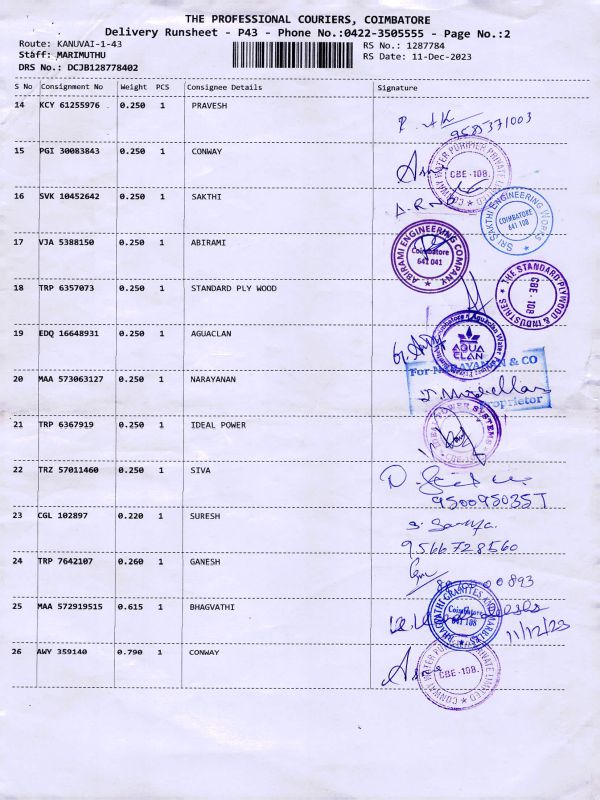 THE PROFESSIONAL COURIERS, COIMBATORE
Delivery Runsheet - P43 - Phone No.:0422-3505555 - Page No.:2
Route: KANUVAI-1-43 RS No.: 1287784
Staff: MARIMUTHU RS Date: 11-Dec-2023
DRS No.: DCJB128778402
S No Consignment No Weight PCS Consignee Details Signature
14 KCY 61255976 0.250 1 PRAVESH
15 PGI 30083843 0.250 1 CONWAY
CONWAY WATER PURIFIER PRIVATE LIMITED
CBE-108.
16 SVK 10452642 0.250 1 SAKTHI
SRI SAKTHI ENGINEERING WORKS
COIMBATORE
641 108
17 VJA 5388150 0.250 1 ABIRAMI
ABIRAMI ENGINEERING COMPANY
Coimbatore
641 041
18 TRP 6357073 0.250 1 STANDARD PLY WOOD
THE STANDARD PLYWOOD & INDUSTRIES
CBE - 108
19 EDQ 16648931 0.250 1 AGUACLAN
AQUA
CLAN
20 MAA 573063127 0.250 1 NARAYANAN
For NARAYANAN & CO
Proprietor
21 TRP 6367919 0.250 1 IDEAL POWER
POWER SYSTEMS
22 TRZ 57011460 0.250 1 SIVA
23 CGL 102897 0.220 1 SURESH
9566728560
24 TRP 7642107 0.260 1 GANESH
25 MAA 572919515 0.615 1 BHAGVATHI
BHAGVATHI GRANITES AND MARBLES
Coimbatore
641 108
11/12/23
26 AWY 359140 0.790 1 CONWAY
CONWAY WATER PURIFIER PRIVATE LIMITED
CBE-108.